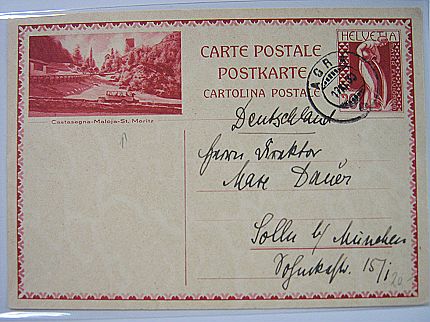 CARTE POSTALE
POSTKARTE
CARTOLINA POSTALE
HELVETIA
AGR
Castasegna-Maloja-St. Moritz
Deutschland
Herrn Direktor
Max Dauer
Solln b/ München
15/I
20